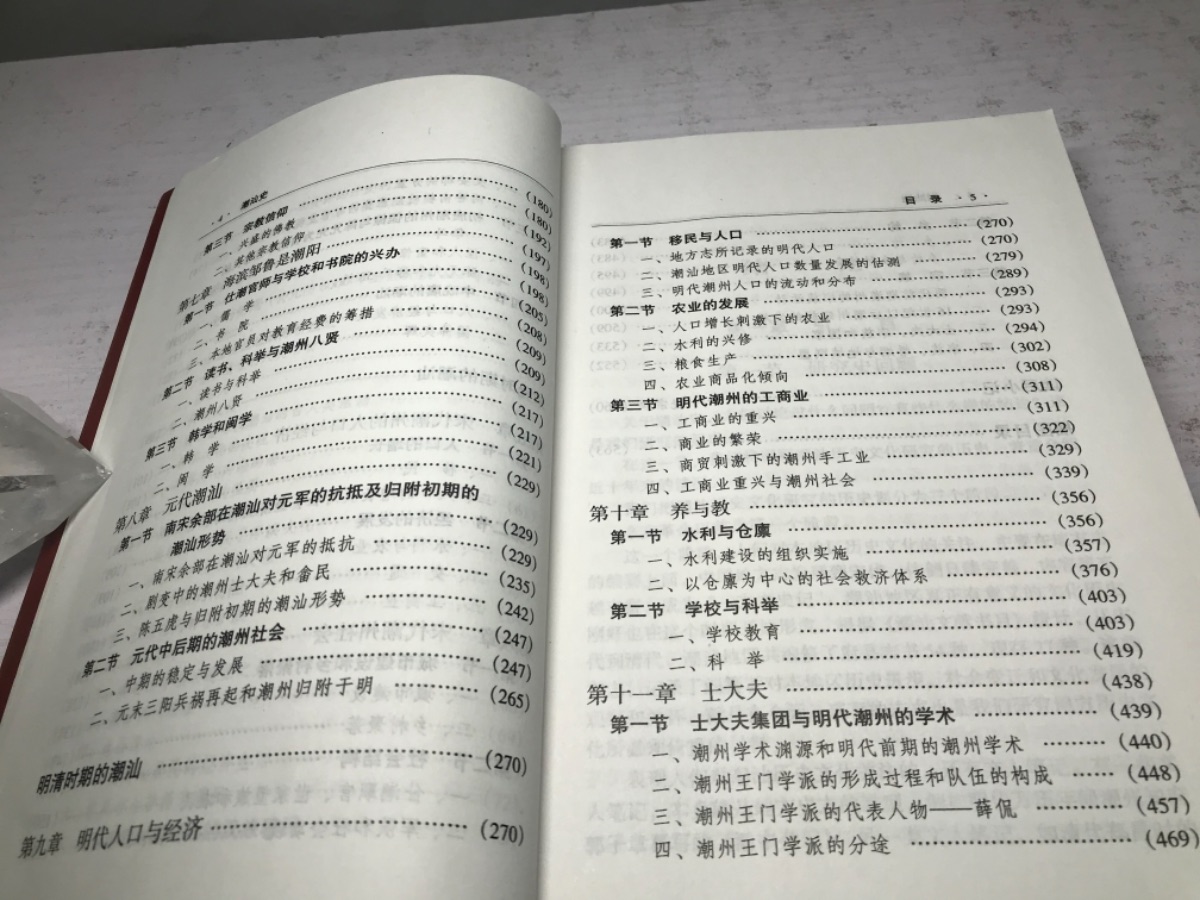 ·4· 潮汕史
第三节 宗教信仰 …… (180)
一、兴盛的佛教 …… (180)
二、其他宗教信仰 …… (192)
第七章 海滨邹鲁是潮阳 …… (197)
第一节 仕潮官师与学校和书院的兴办 …… (198)
一、儒 学 …… (198)
二、书 院 …… (205)
三、本地官员对教育经费的筹措 …… (208)
第二节 读书、科举与潮州八贤 …… (209)
一、读书与科举 …… (209)
二、潮州八贤 …… (212)
第三节 韩学和闽学 …… (217)
一、韩 学 …… (217)
二、闽 学 …… (221)
第八章 元代潮汕 …… (229)
第一节 南宋余部在潮汕对元军的抗抵及归附初期的
潮汕形势 …… (229)
一、南宋余部在潮汕对元军的抵抗 …… (229)
二、剧变中的潮州士大夫和畲民 …… (235)
三、陈五虎与归附初期的潮汕形势 …… (242)
第二节 元代中后期的潮州社会 …… (247)
一、中期的稳定与发展 …… (247)
二、元末三阳兵祸再起和潮州归附于明 …… (265)
明清时期的潮汕 …… (270)
第九章 明代人口与经济 …… (270)
目 录 ·5·
第一节 移民与人口 …… (270)
一、地方志所记录的明代人口 …… (270)
二、潮汕地区明代人口数量发展的估测 …… (279)
三、明代潮州人口的流动和分布 …… (289)
第二节 农业的发展 …… (293)
一、人口增长刺激下的农业 …… (293)
二、水利的兴修 …… (294)
三、粮食生产 …… (302)
四、农业商品化倾向 …… (308)
第三节 明代潮州的工商业 …… (311)
一、工商业的重兴 …… (311)
二、商业的繁荣 …… (322)
三、商贸刺激下的潮州手工业 …… (329)
四、工商业重兴与潮州社会 …… (339)
第十章 养与教 …… (356)
第一节 水利与仓廪 …… (356)
一、水利建设的组织实施 …… (357)
二、以仓廪为中心的社会救济体系 …… (376)
第二节 学校与科举 …… (403)
一、学校教育 …… (403)
二、科 举 …… (419)
第十一章 士大夫 …… (438)
第一节 士大夫集团与明代潮州的学术 …… (439)
一、潮州学术渊源和明代前期的潮州学术 …… (440)
二、潮州王门学派的形成过程和队伍的构成 …… (448)
三、潮州王门学派的代表人物——薛侃 …… (457)
四、潮州王门学派的分途 …… (469)